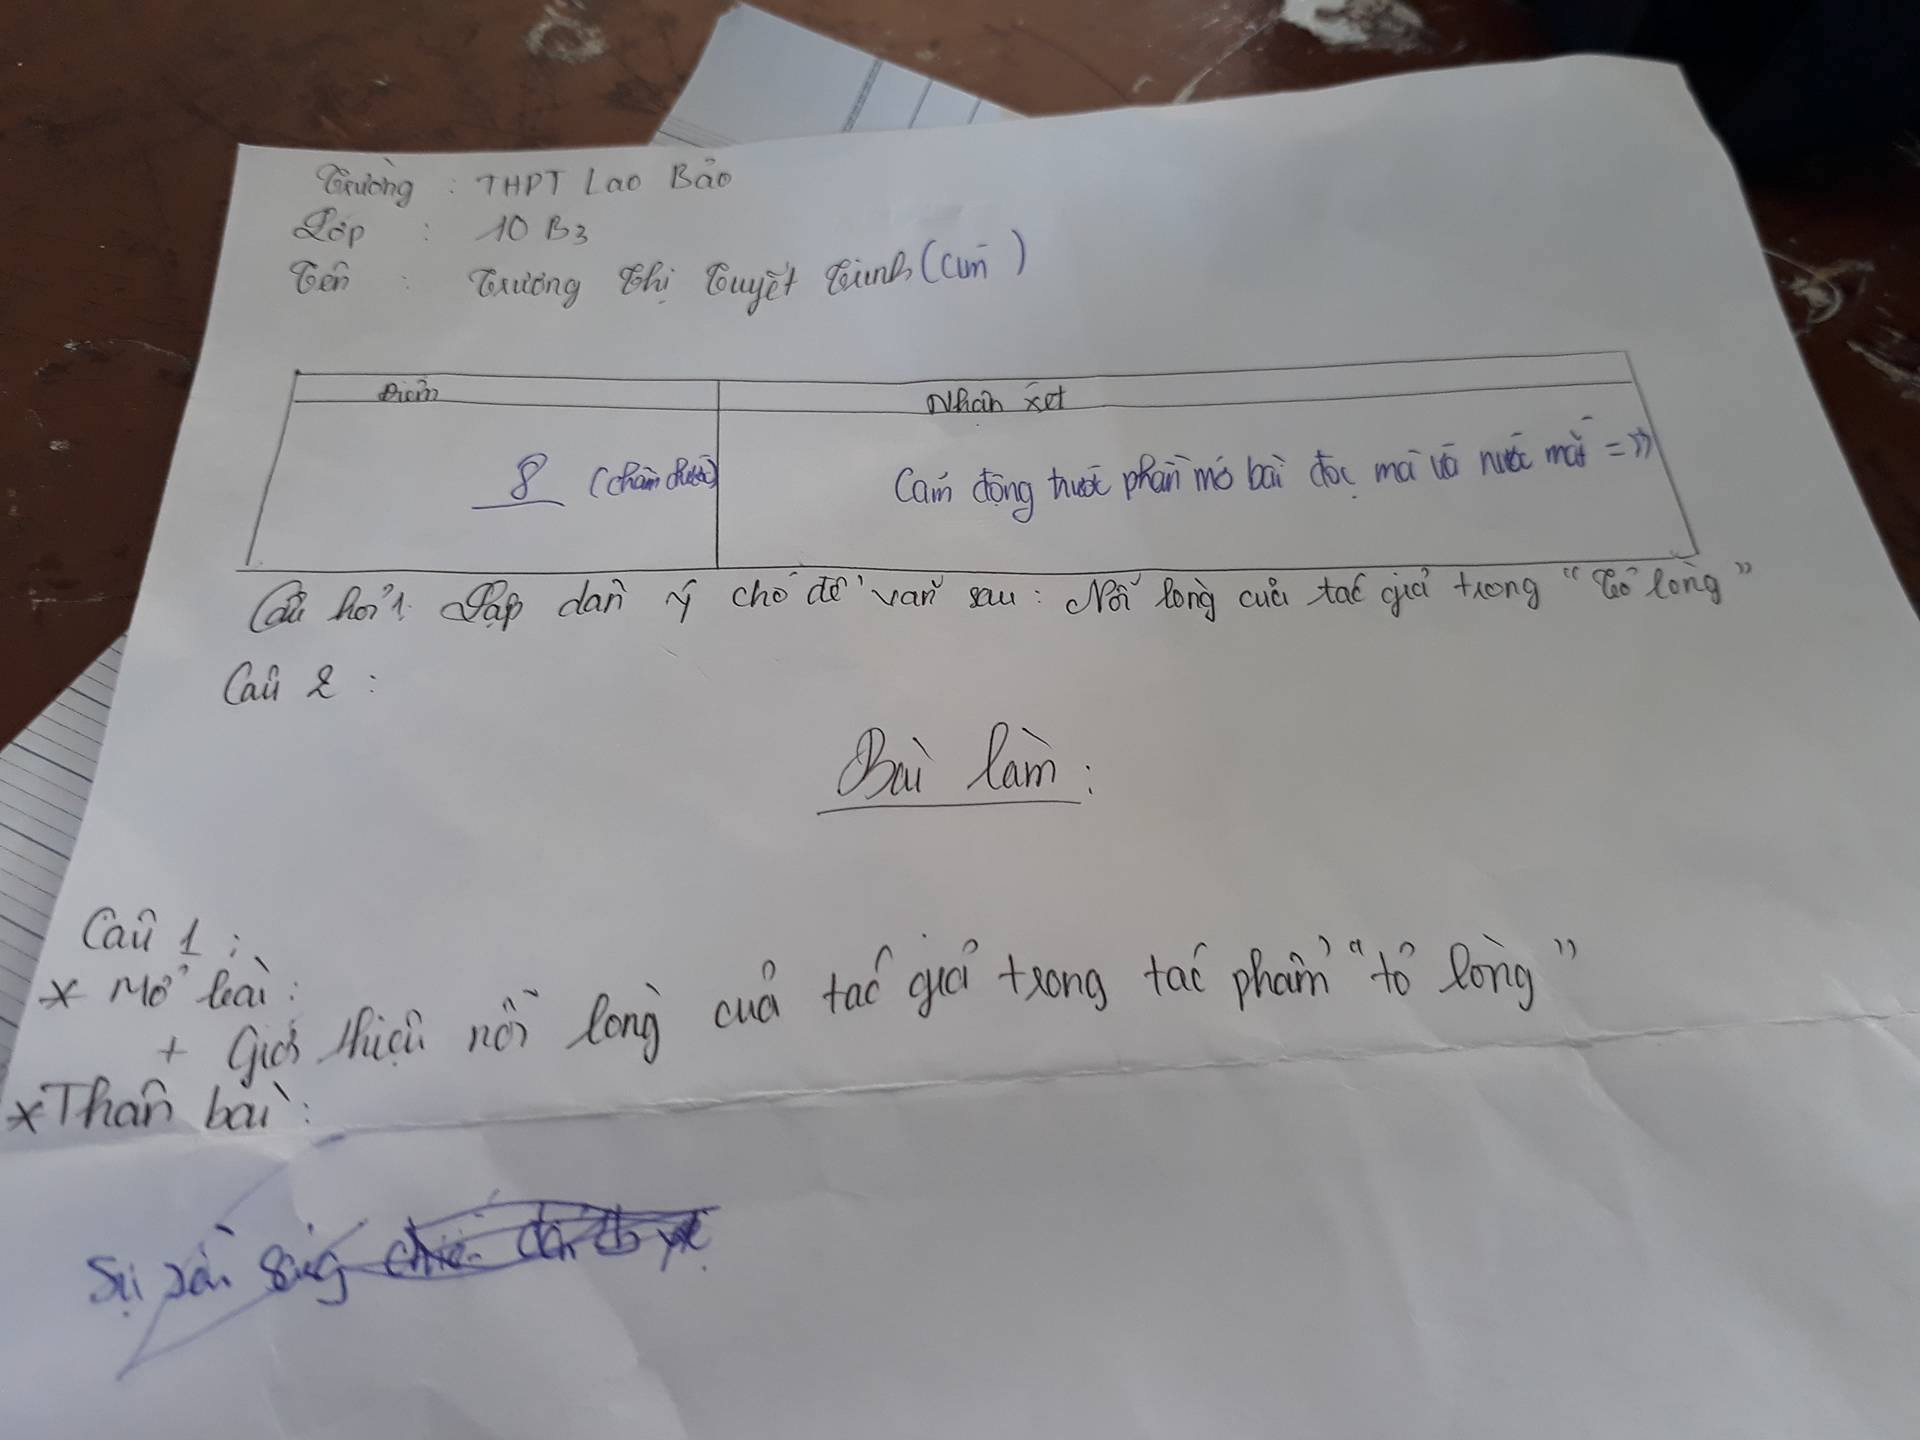 Trường : THPT Lao Bảo
Lớp : 10 B3
Tên : Trương Thị Tuyết Trinh (Cún)
Điểm Nhận xét
8 (châm chước) Cảm động trước phần mở bài đọc mà và nước mắt =))
Câu hỏi 1. Lập dàn ý cho đề văn sau : Nỗi lòng của tác giả trong "Tỏ lòng"
Câu 2 :
Bài làm :
Câu 1 :
* Mở bài :
+ Giới thiệu nỗi lòng của tác giả trong tác phẩm "tỏ lòng"
* Thân bài :
Sự sẵn sàng